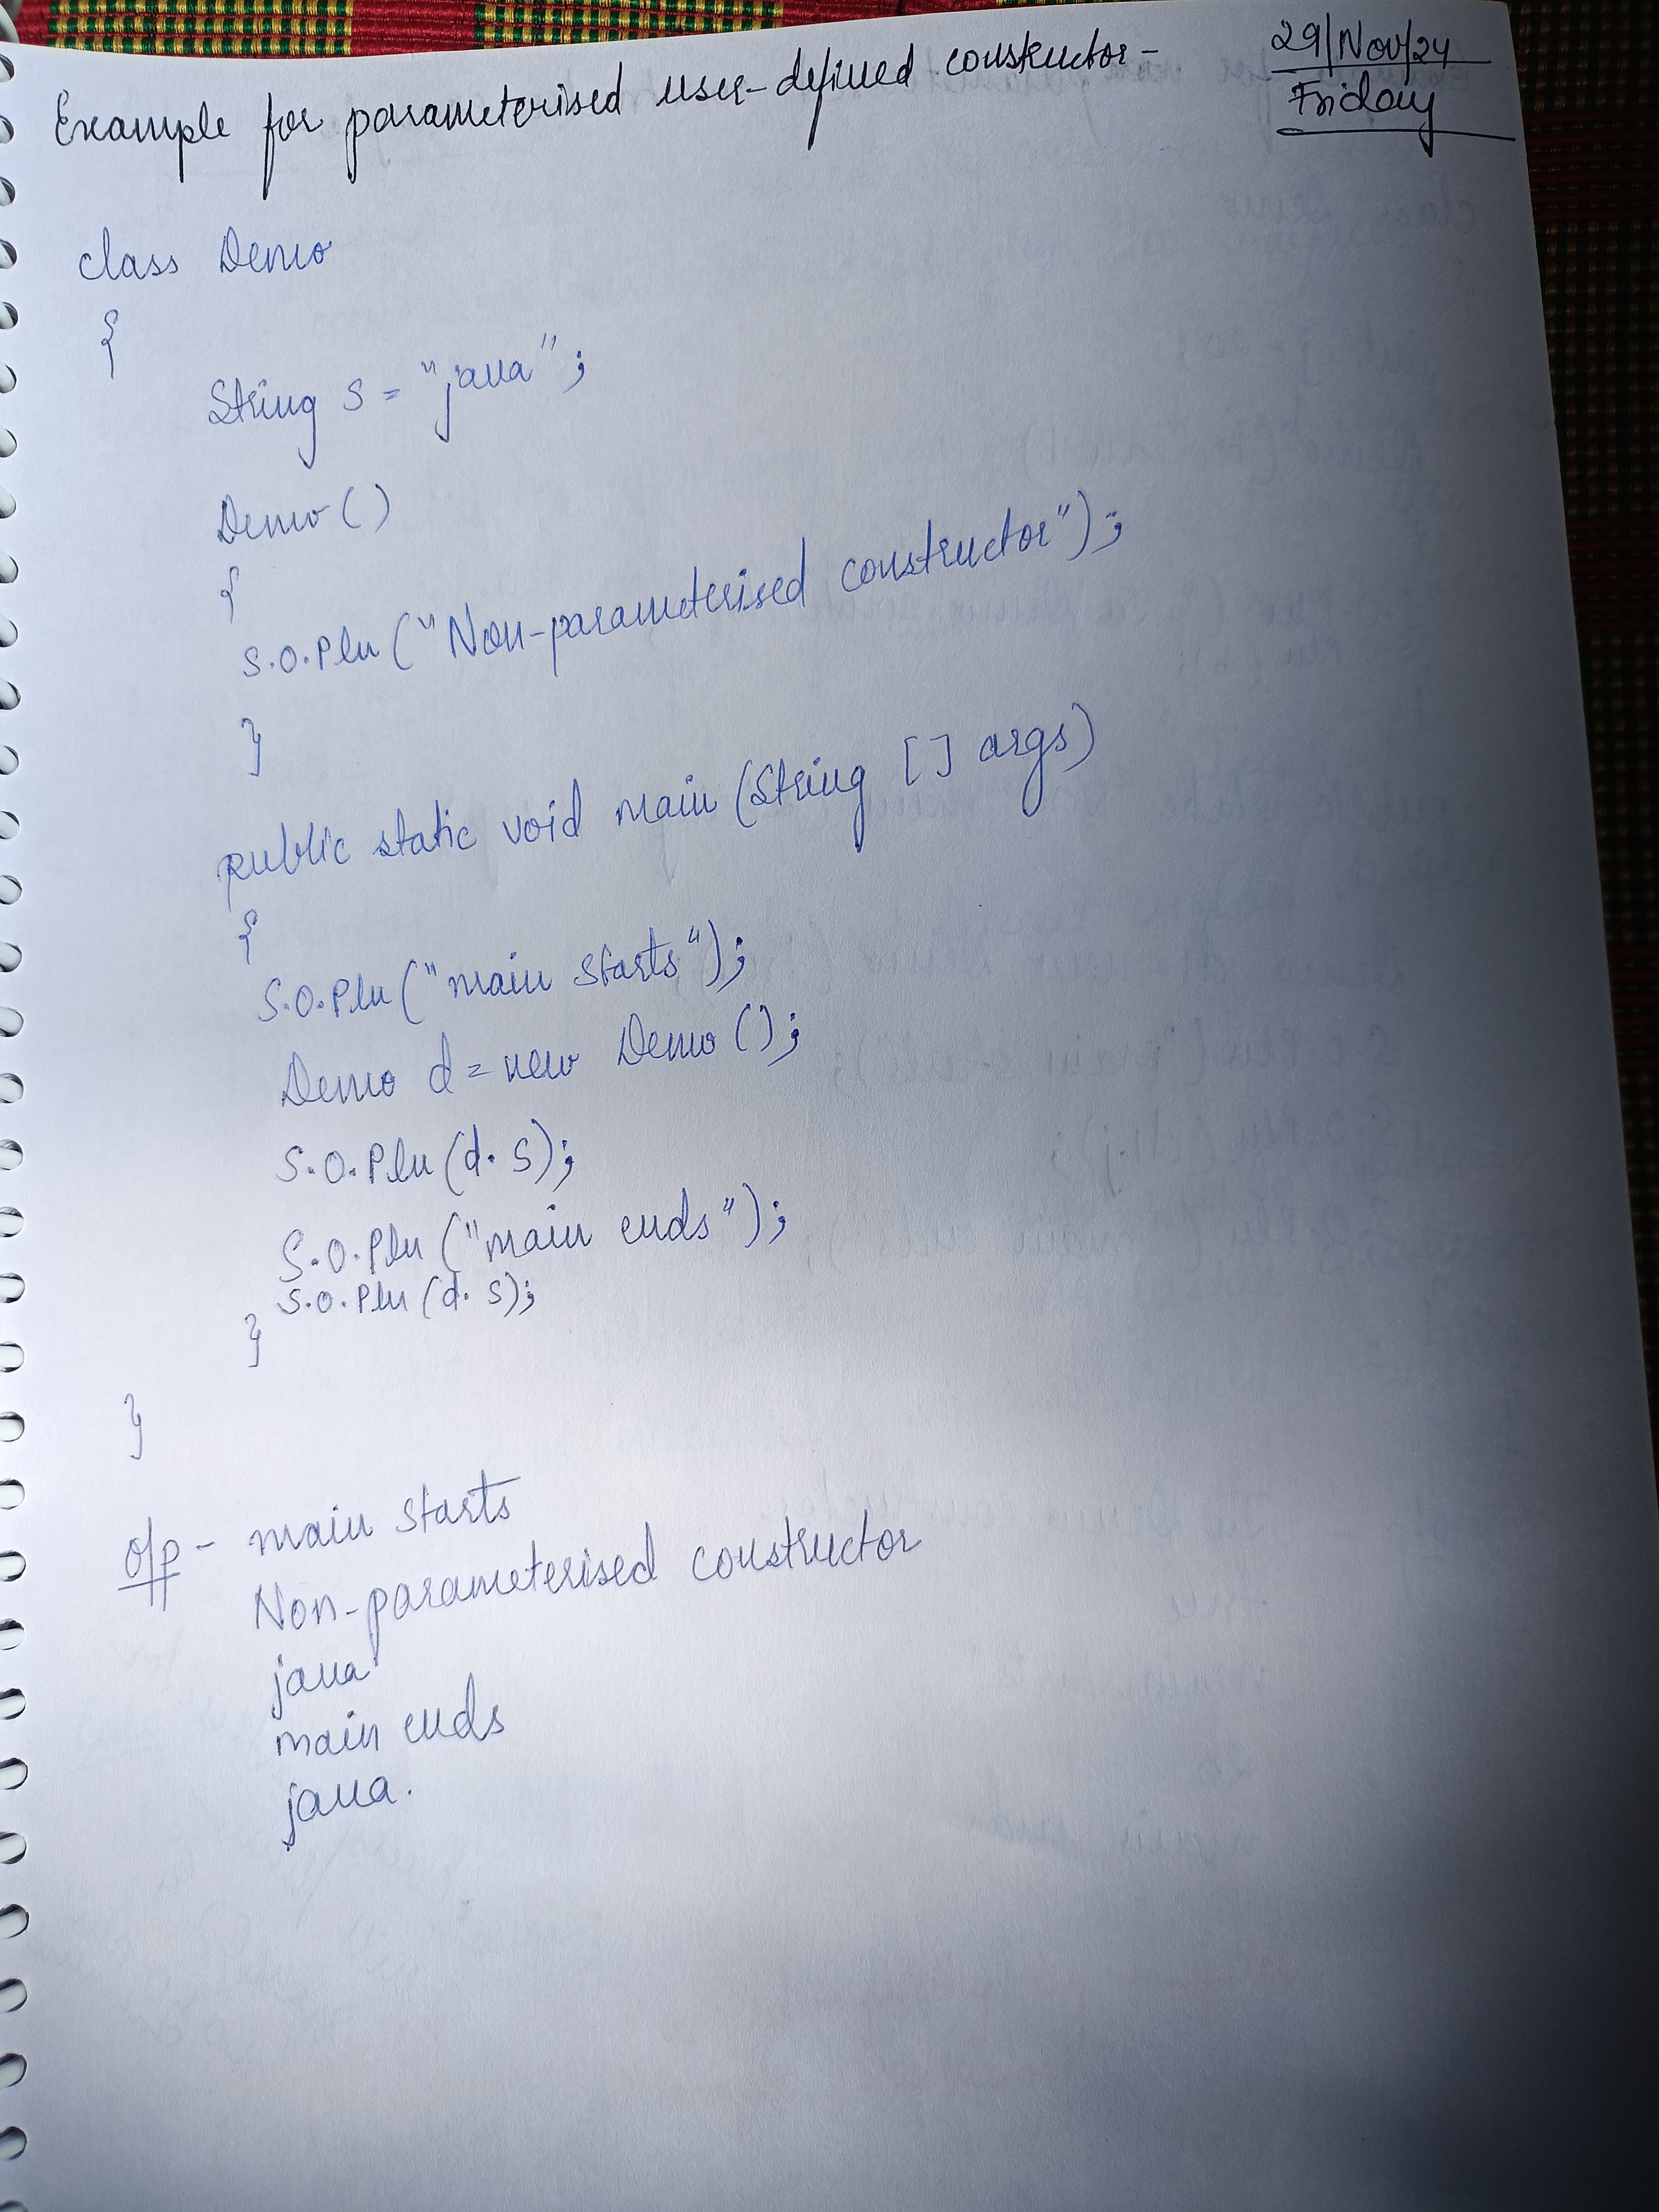 29/Nov/24
Friday
Example for parameterised user-defined constructor-
class Demo
{
String s = "java";
Demo ()
{
S.O.Pln ("Non-parameterised constructor");
}
public static void main (String [] args)
{
S.O.Pln ("main starts");
Demo d = new Demo ();
S.O.Pln (d. s);
S.O.Pln ("main ends");
S.O.Pln (d. s);
}
}
o/p - main starts
Non-parameterised constructor
java
main ends
java.